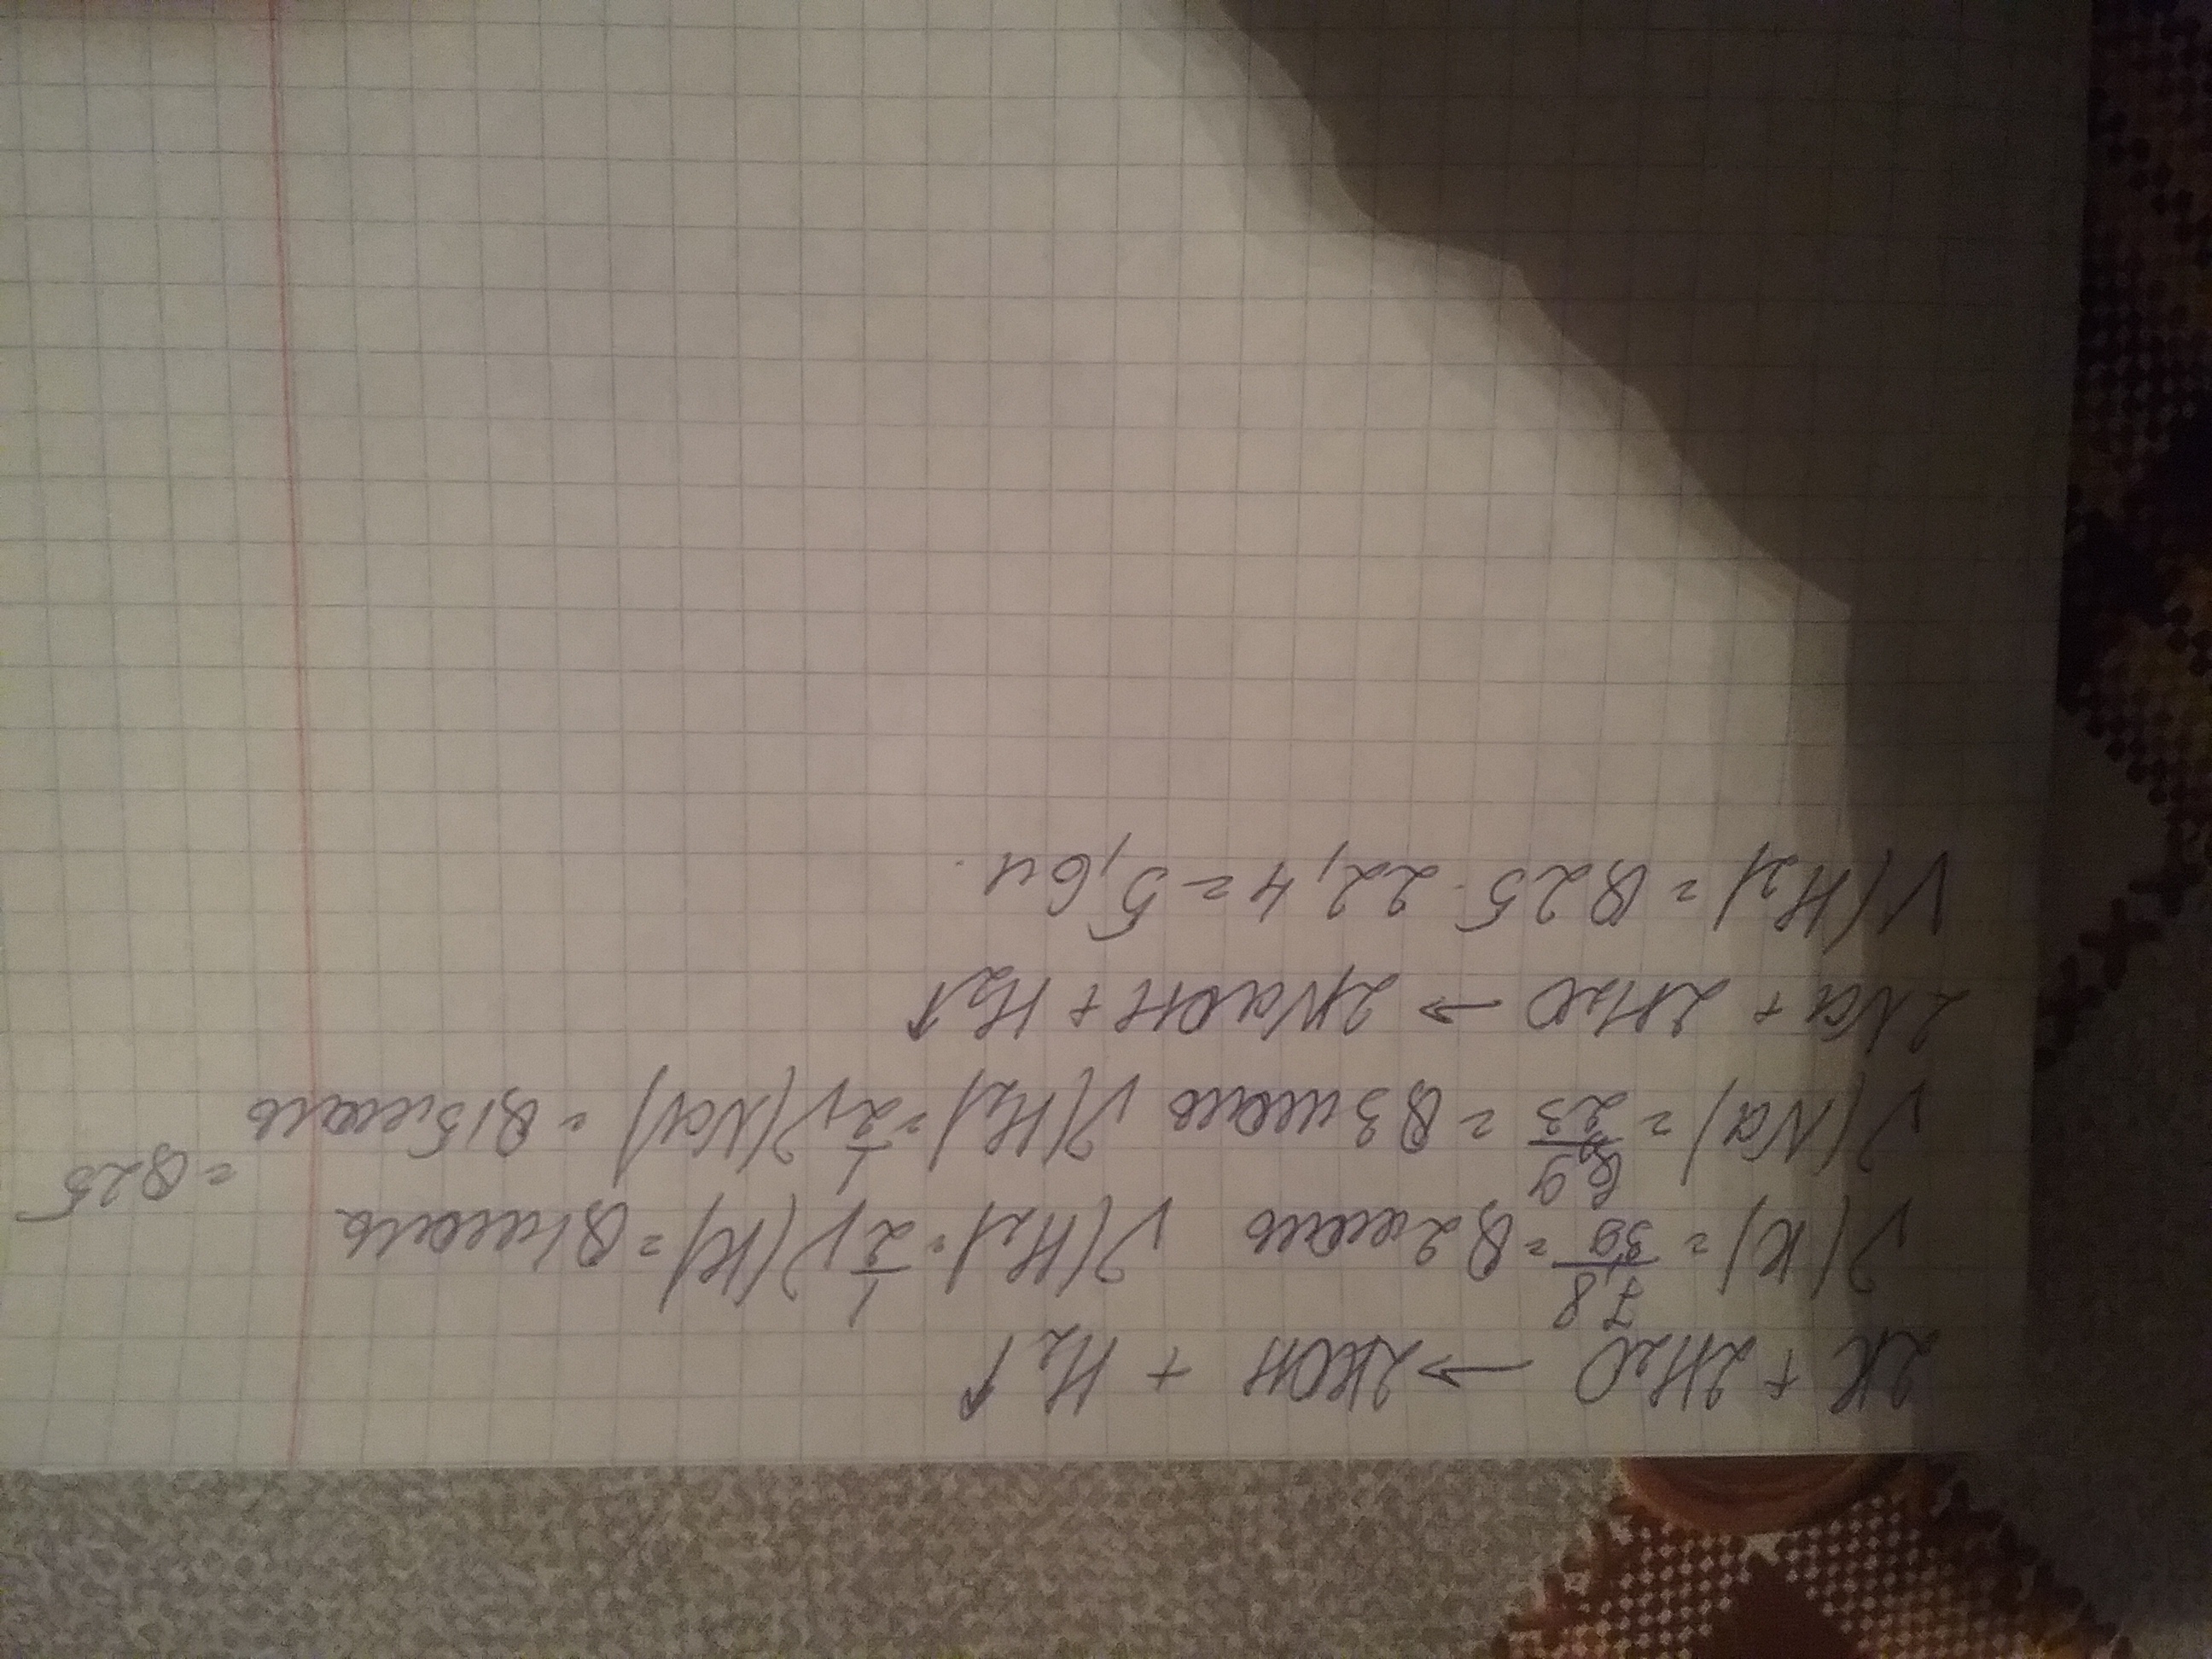 2K + 2H₂O → 2KOH + H₂↑
ν(K) = 7,8/39 = 0,2 моль ν(H₂) = 1/2 ν(K) = 0,1 моль
= 0,25
ν(Na) = 6,9/23 = 0,3 моль ν(H₂) = 1/2 ν(Na) = 0,15 моль
2Na + 2H₂O → 2NaOH + H₂↑
V(H₂) = 0,25 · 22,4 = 5,6 л.